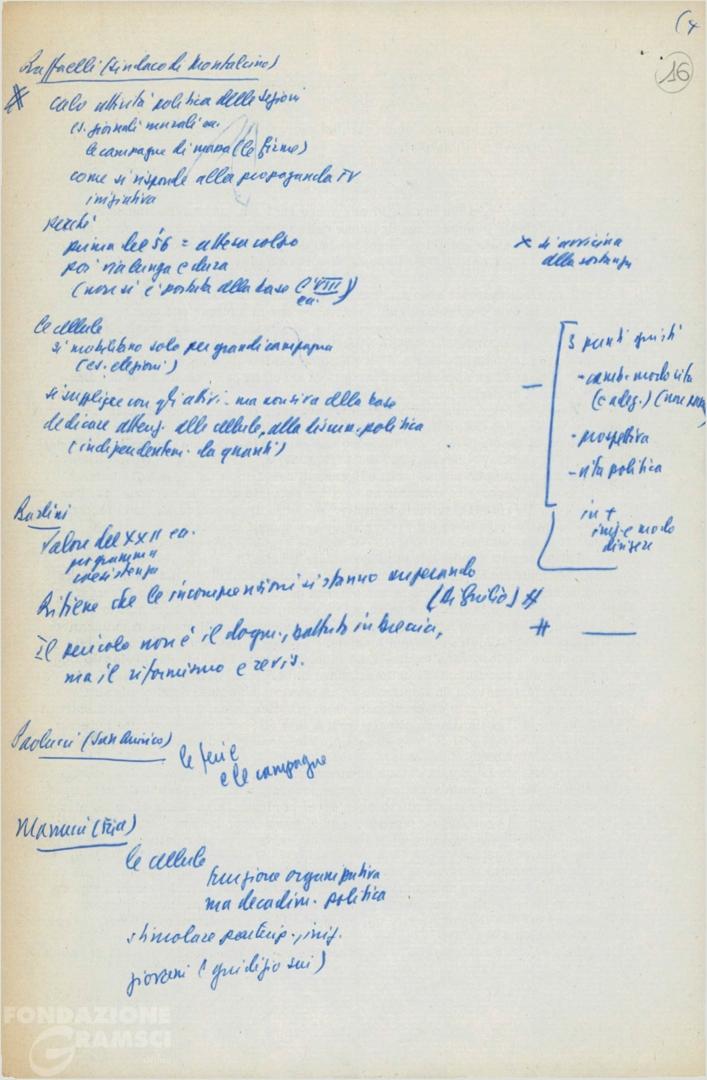 (4
16
Raffaelli (sindaco di Montalcino)
calo attività politica delle sezioni
es. giornali murali ecc.
le campagne di massa (le firme)
come si risponde alla propaganda TV
iniziativa
perché
prima del '56 = attesa colpo
poi via lunga e dura
(non si è portata alla base l'VIII)
ecc.
x si avvicina
alla sostanza
le cellule
si mobilitano solo per grandi campagne
(es. elezioni)
si supplisce con gli attivi - ma non viva della base
dedicare attenz. alle cellule, alla discuss. politica
(indipendentem. da quanti)
3 punti giusti
- camb. modo vita
(e adeg.) (non
- prospettiva
- vita politica
in +
iniz. e modo
dirigere
Bardini
Valore del XXII ecc.
programma
coesistenza
Ritiene che le incomprensioni si stanno superando
(Di Giulio) #
Il pericolo non è il dogm., battuto in breccia,
ma il riformismo e revis.
#
Paolucci (San Quirico)
le ferie
e le campagne
Mannucci (
le cellule
funzione organizzativa
ma decadim. politica
stimolare partecip., iniz.
giovani (giudizio sui)
FONDAZIONE
GRAMSCI